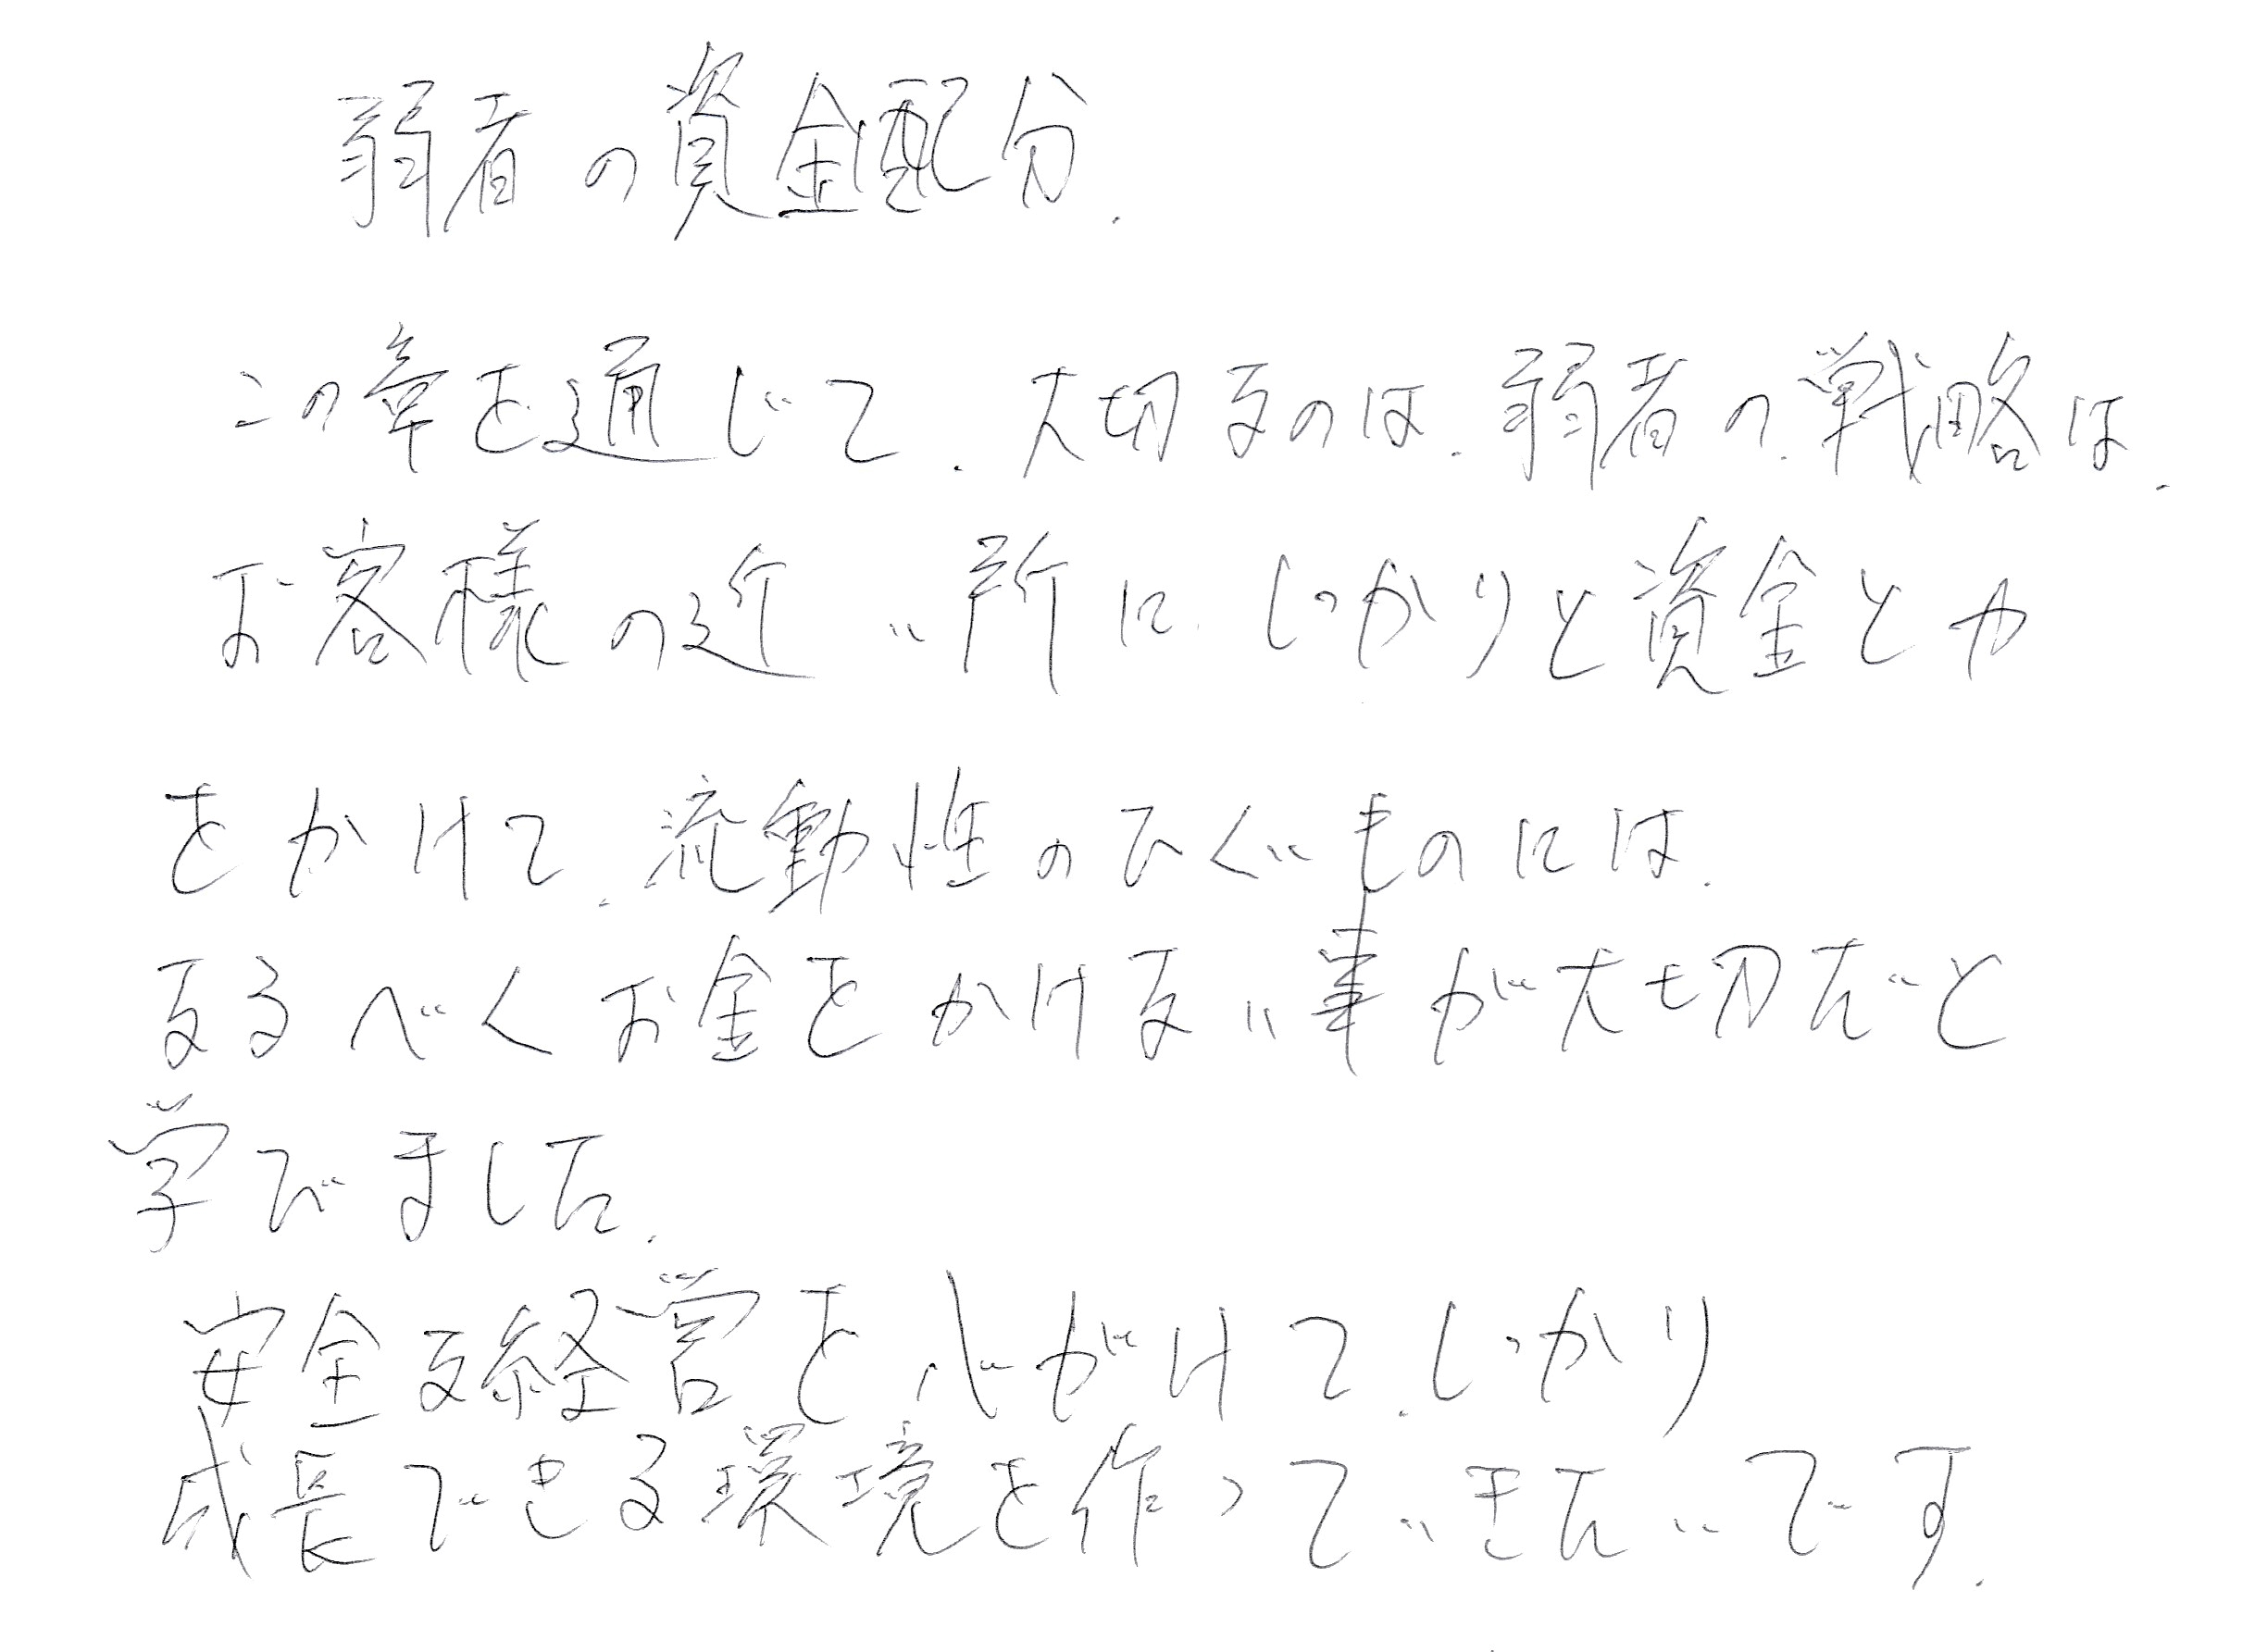 弱者の資金配分.
この章を通じて、大切なのは、弱者の戦略は、
お客様の近い所に、しっかりと資金と力
をかけて、流動性のひくいものには、
なるべくお金をかけない事が大切だと
学びました。
安全な経営を心がけて、しっかり
成長できる環境を作っていきたいです。